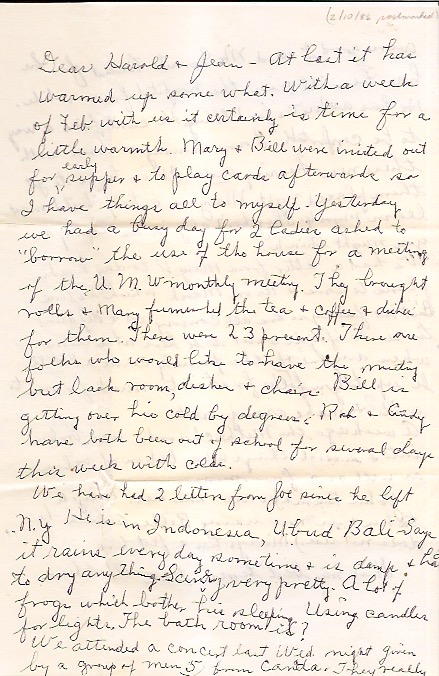 (2/10/86 postmarked)
Dear Harold & Jean - At last it has
warmed up some what. With a week
of Feb. with us it certainly is time for a
little warmth. Mary & Bill were invited out
for early supper & to play cards afterwards so
I have things all to myself. Yesterday
we had a busy day for 2 ladies asked to
"borrow" the use of the house for a meeting
of the U. M. W monthly meeting. They brought
rolls & Mary furnished the tea & coffee & dishes
for them. There were 23 present. There are
folks who would like to have the meeting
but lack room, dishes & chairs. Bill is
getting over his cold by degrees. Rob & Cindy
have both been out of school for several days
this week with colds.
We have had 2 letters from Joe since he left
N.y He is in Indonesia, Ubud Bali - Says
it rains every day, sometime & is damp & ha
to dry any thing. Scenery very pretty. A lot of
frogs which bother his sleeping. Using candles
for lights. The bath room is?
We attended a concert last Wed. night given
by a group of men 5, from . They really